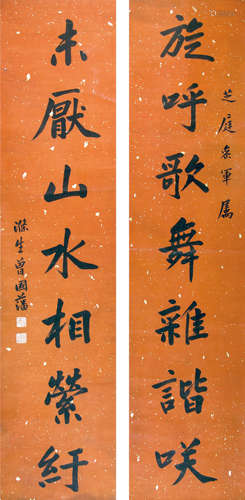 芝庭参軍属
旋呼歌舞雜諧咲
未厭山水相縈紆
滌生曾國藩